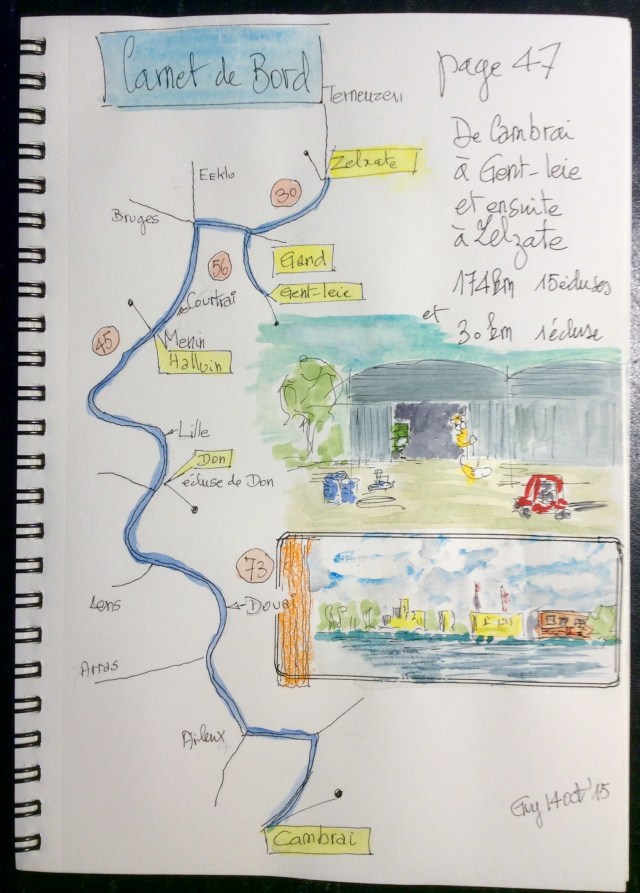 Carnet de Bord
page 47
Terneuzen
De Cambrai
à Gent-leie
et ensuite
à Zelzate
174km 15 écluses
et 30 km 1 écluse
Zelzate
Eeklo
30
Bruges
Gand
56
Gent-leie
Courtrai
45
Menin
Halluin
Lille
Don
écluse de Don
73
Lens
Douai
Arras
Arleux
Cambrai
Guy 14 oct '15